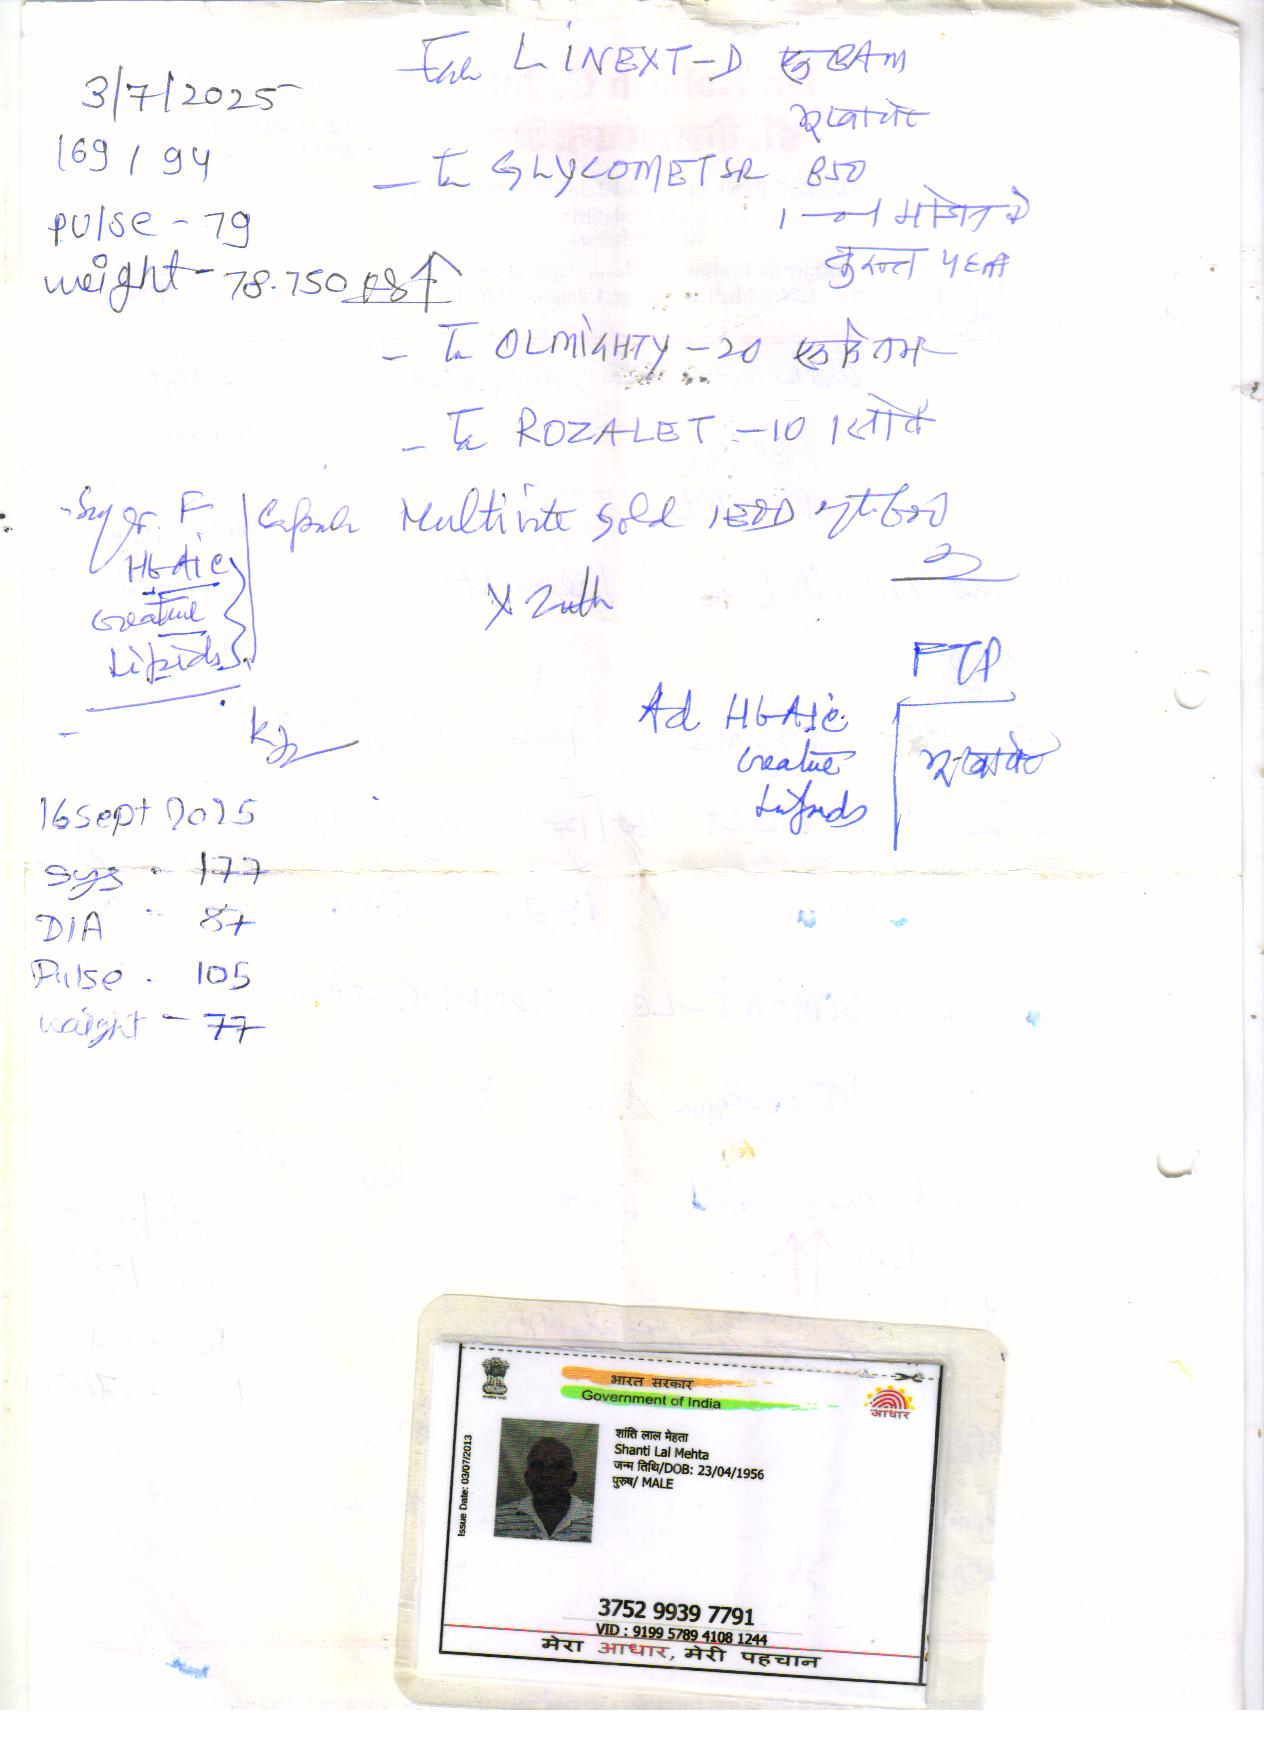 3/7/2025
169 / 94
pulse - 79
weight - 78.750 kg ↑
Tab LINEXT-D एक 8AM
भूखे पेट
- Tab GLYCOMET SR 850
1 — 1 भोजन के
तुरन्त
- Tab OLMIGHTY - 20
- Tab ROZALET - 10 1
F
HbA1c
Creatine
Lipids
Capsule Multivite Gold
FTP
Ad HbA1c
Creatine
Lipids
भूखे पेट
16 Sept 2025
Sys - 177
DIA - 87
Pulse - 105
weight - 77
भारत सरकार
Government of India
आधार
Issue Date: 03/07/2013
शांति लाल मेहता
Shanti Lal Mehta
जन्म तिथि/DOB: 23/04/1956
पुरुष/ MALE
3752 9939 7791
VID : 9199 5789 4108 1244
मेरा आधार, मेरी पहचान